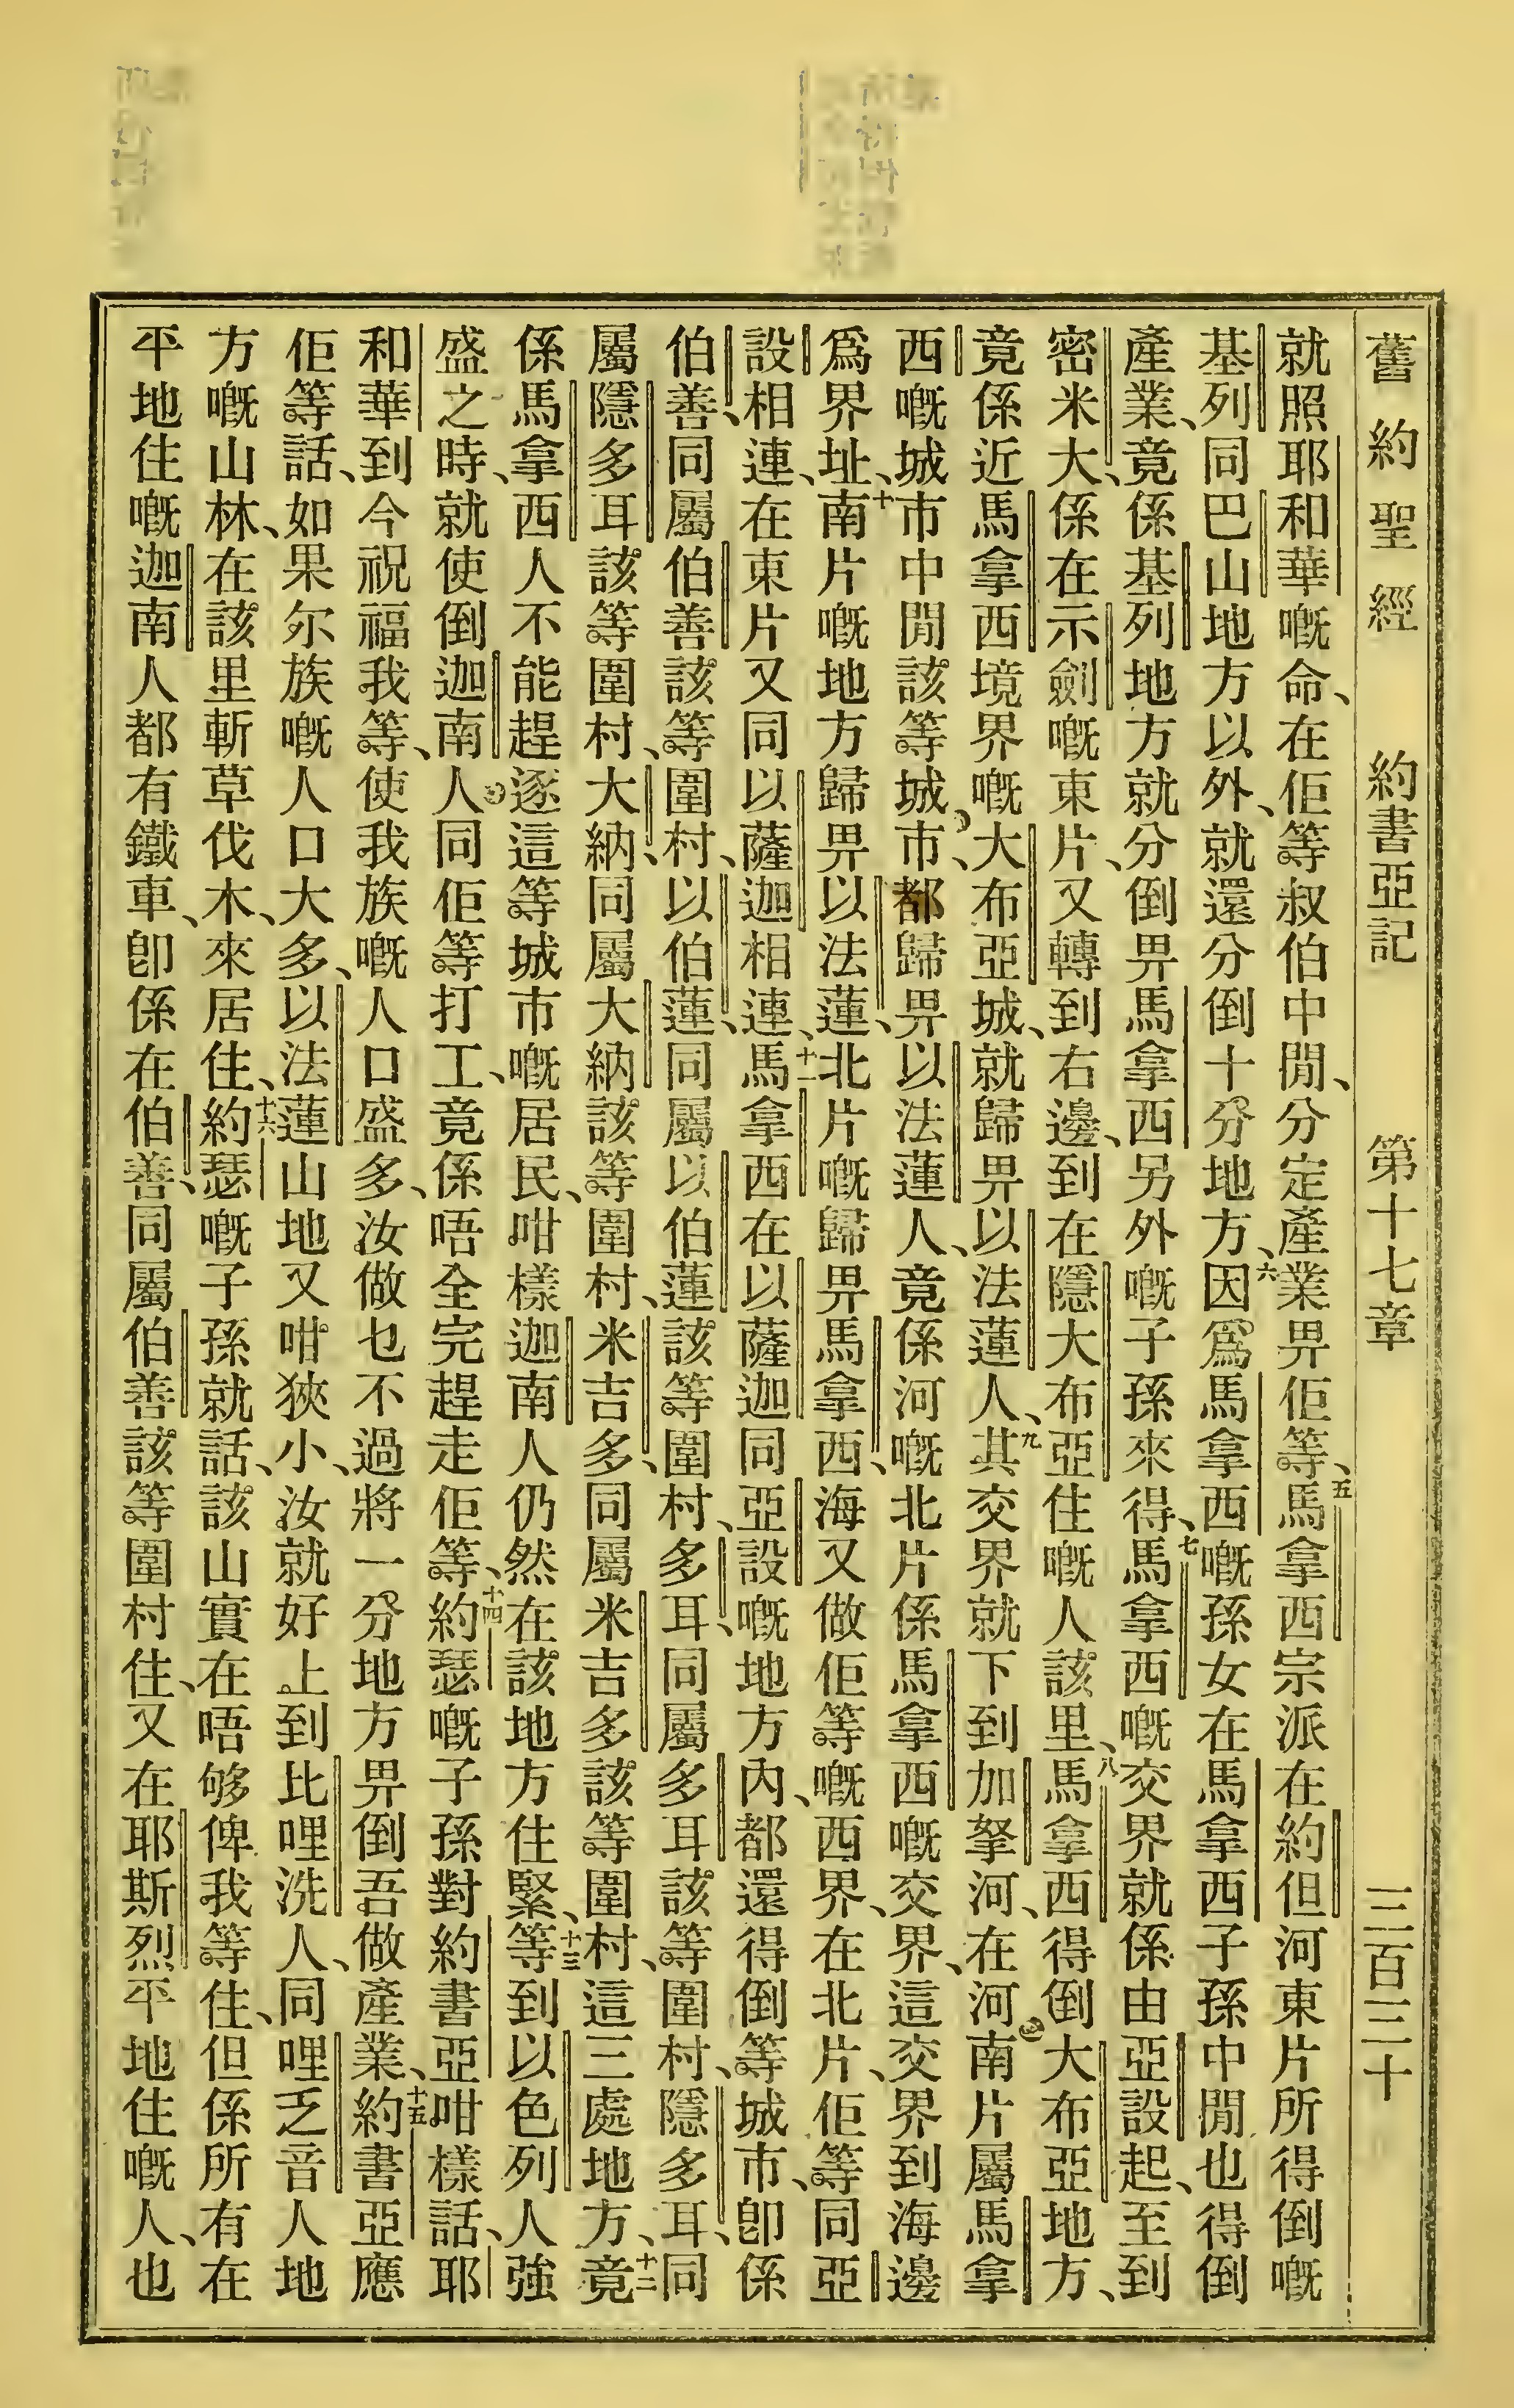 舊約聖經 約書亞記 第十七章 三百三十
就照耶和華嘅命、在佢等叔伯中閒、分定產業畀佢等、五馬拿西宗派在約但河東片所得倒嘅
基列同巴山地方以外、就還分倒十分地方、六因爲馬拿西嘅孫女在馬拿西子孫中閒也得倒
產業、竟係基列地方就分倒畀馬拿西另外嘅子孫來得、七馬拿西嘅交界就係由亞設起、至到
密米大、係在示劍嘅東片、又轉到右邊、到在隱大布亞住嘅人該里、八馬拿西得倒大布亞地方、
竟係近馬拿西境界嘅大布亞城、就歸畀以法蓮人、九其交界就下到加拏河、在河南片屬馬拿
西嘅城市中閒該等城市、都歸畀以法蓮人、竟係河嘅北片係馬拿西嘅交界、這交界到海邊
爲界址、十南片嘅地方歸畀以法蓮、北片嘅歸畀馬拿西、海又做佢等嘅西界、在北片、佢等同亞
設相連、在東片又同以薩迦相連、十一馬拿西在以薩迦同亞設嘅地方內、都還得倒等城市、卽係
伯善、同屬伯善該等圍村、以伯蓮、同屬以伯蓮該等圍村、多耳、同屬多耳該等圍村、隱多耳、同
屬隱多耳該等圍村、大納、同屬大納該等圍村、米吉多、同屬米吉多該等圍村、這三處地方、十二竟
係馬拿西人不能趕逐這等城市嘅居民、咁樣迦南人仍然在該地方住緊、十三等到以色列人強
盛之時、就使倒迦南人同佢等打工、竟係唔全完趕走佢等、十四約瑟嘅子孫對約書亞咁樣話、耶
和華到今祝福我等、使我族嘅人口盛多、汝做乜不過將一分地方畀倒吾做產業、十五約書亞應
佢等話、如果尔族嘅人口大多、以法蓮山地又咁狹小、汝就好上到比哩洗人、同哩乏音人地
方嘅山林、在該里斬草伐木、來居住、十六約瑟嘅子孫就話、該山實在唔够俾我等住、但係所有在
平地住嘅迦南人都有鐵車、卽係在伯善、同屬伯善該等圍村住、又在耶斯烈平地住嘅人、也